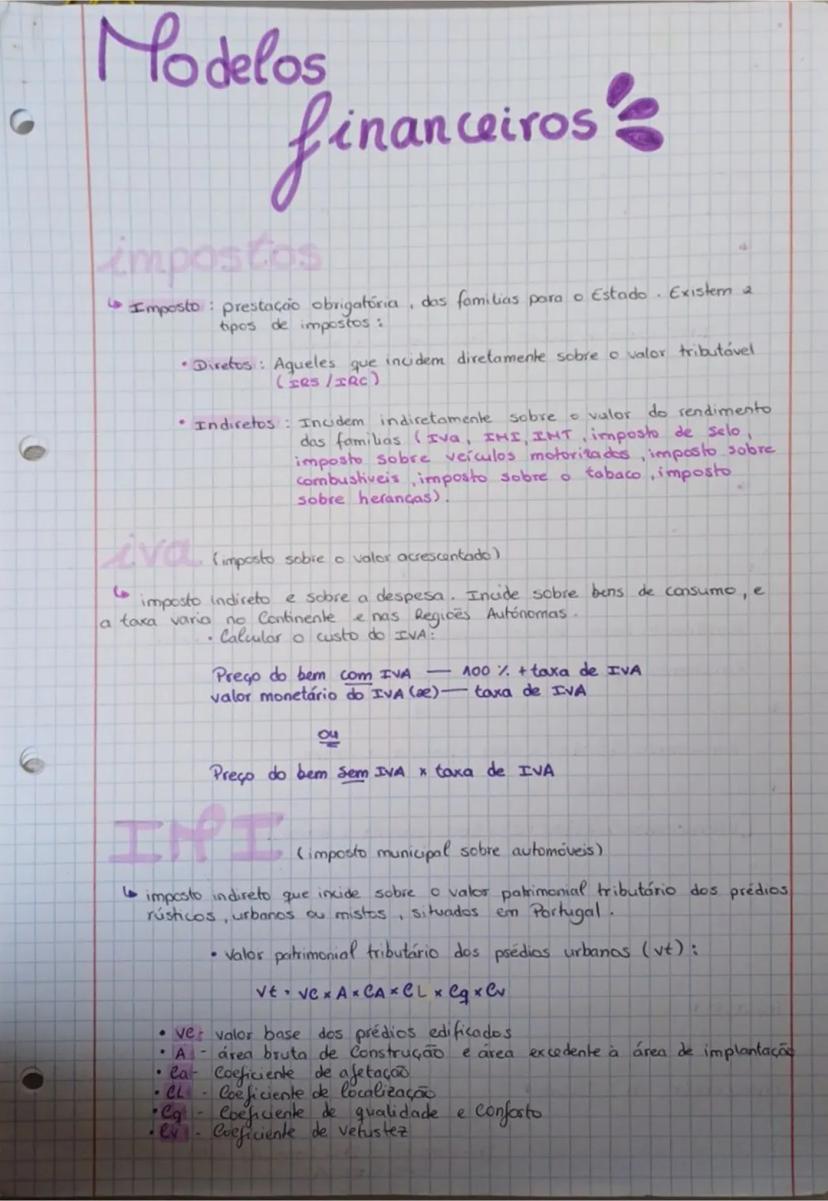 Modelos
financeiros
impostos
↳ Imposto : prestação obrigatória , das famílias para o Estado . Existem 2
tipos de impostos :
• Diretos : Aqueles que incidem diretamente sobre o valor tributável
(IRS / IRC)
• Indiretos : Incidem indiretamente sobre o valor do rendimento
das famílias (Iva, IMI, IMT , imposto de selo ,
imposto sobre veículos motorizados , imposto sobre
combustiveis , imposto sobre o tabaco , imposto
sobre heranças).
iva (imposto sobre o valor acrescentado)
↳ imposto indireto e sobre a despesa . Incide sobre bens de consumo , e
a taxa varia no Continente e nas Regiões Autónomas .
• Calcular o custo do IVA :
Preço do bem com IVA — 100 % + taxa de IVA
valor monetário do IVA (x) — taxa de IVA
ou
Preço do bem sem IVA x taxa de IVA
IMI (imposto municipal sobre automóveis)
↳ imposto indireto que incide sobre o valor patrimonial tributário dos prédios
rústicos , urbanos ou mistos , situados em Portugal .
• Valor patrimonial tributário dos prédios urbanos (vt) :
Vt = VC x A x CA x CL x Cq x Cv
• VC - valor base dos prédios edificados
• A - área bruta de Construção e área excedente à área de implantação
• Ca - Coeficiente de afetação
• CL - Coeficiente de localização
• Cq - Coeficiente de qualidade e conforto
• Cv - Coeficiente de vetustez